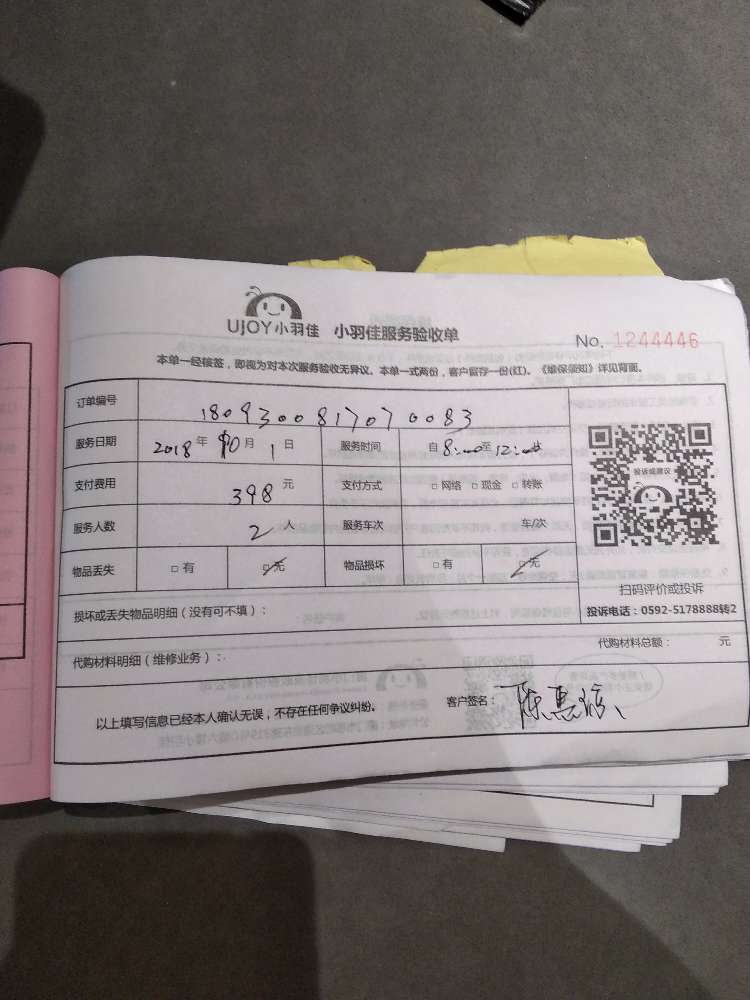 UJOY小羽佳 小羽佳服务验收单
No. 1244446
本单一经核签，即视为对本次服务验收无异议。本单一式两份，客户留存一份(红)。《维保须知》详见背面。
订单编号 180930081707 0083
服务日期 2018年 10月 1日 服务时间 自8:00至12:00
支付费用 398元 支付方式 □网络 □现金 □转账
服务人数 2人 服务车次 车/次
物品丢失 □有 □无 物品损坏 □有 □无
投诉或建议
扫码评价或投诉
投诉电话：0592-5178888转2
损坏或丢失物品明细（没有可不填）：
代购材料明细（维修业务）： 代购材料总额： 元
以上填写信息已经本人确认无误，不存在任何争议纠纷。 客户签名：陈惠